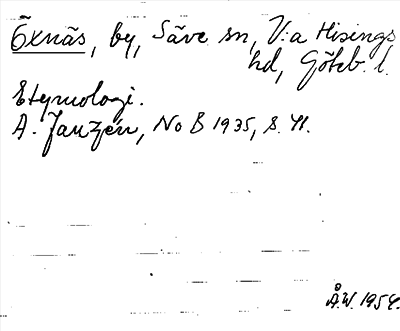 Öxnäs, by, Säve sn, V:a Hisings
hd, Göteb. l.
Etymologi.
A. Janzén, No B 1935, s. 41.
Å.W. 1954.